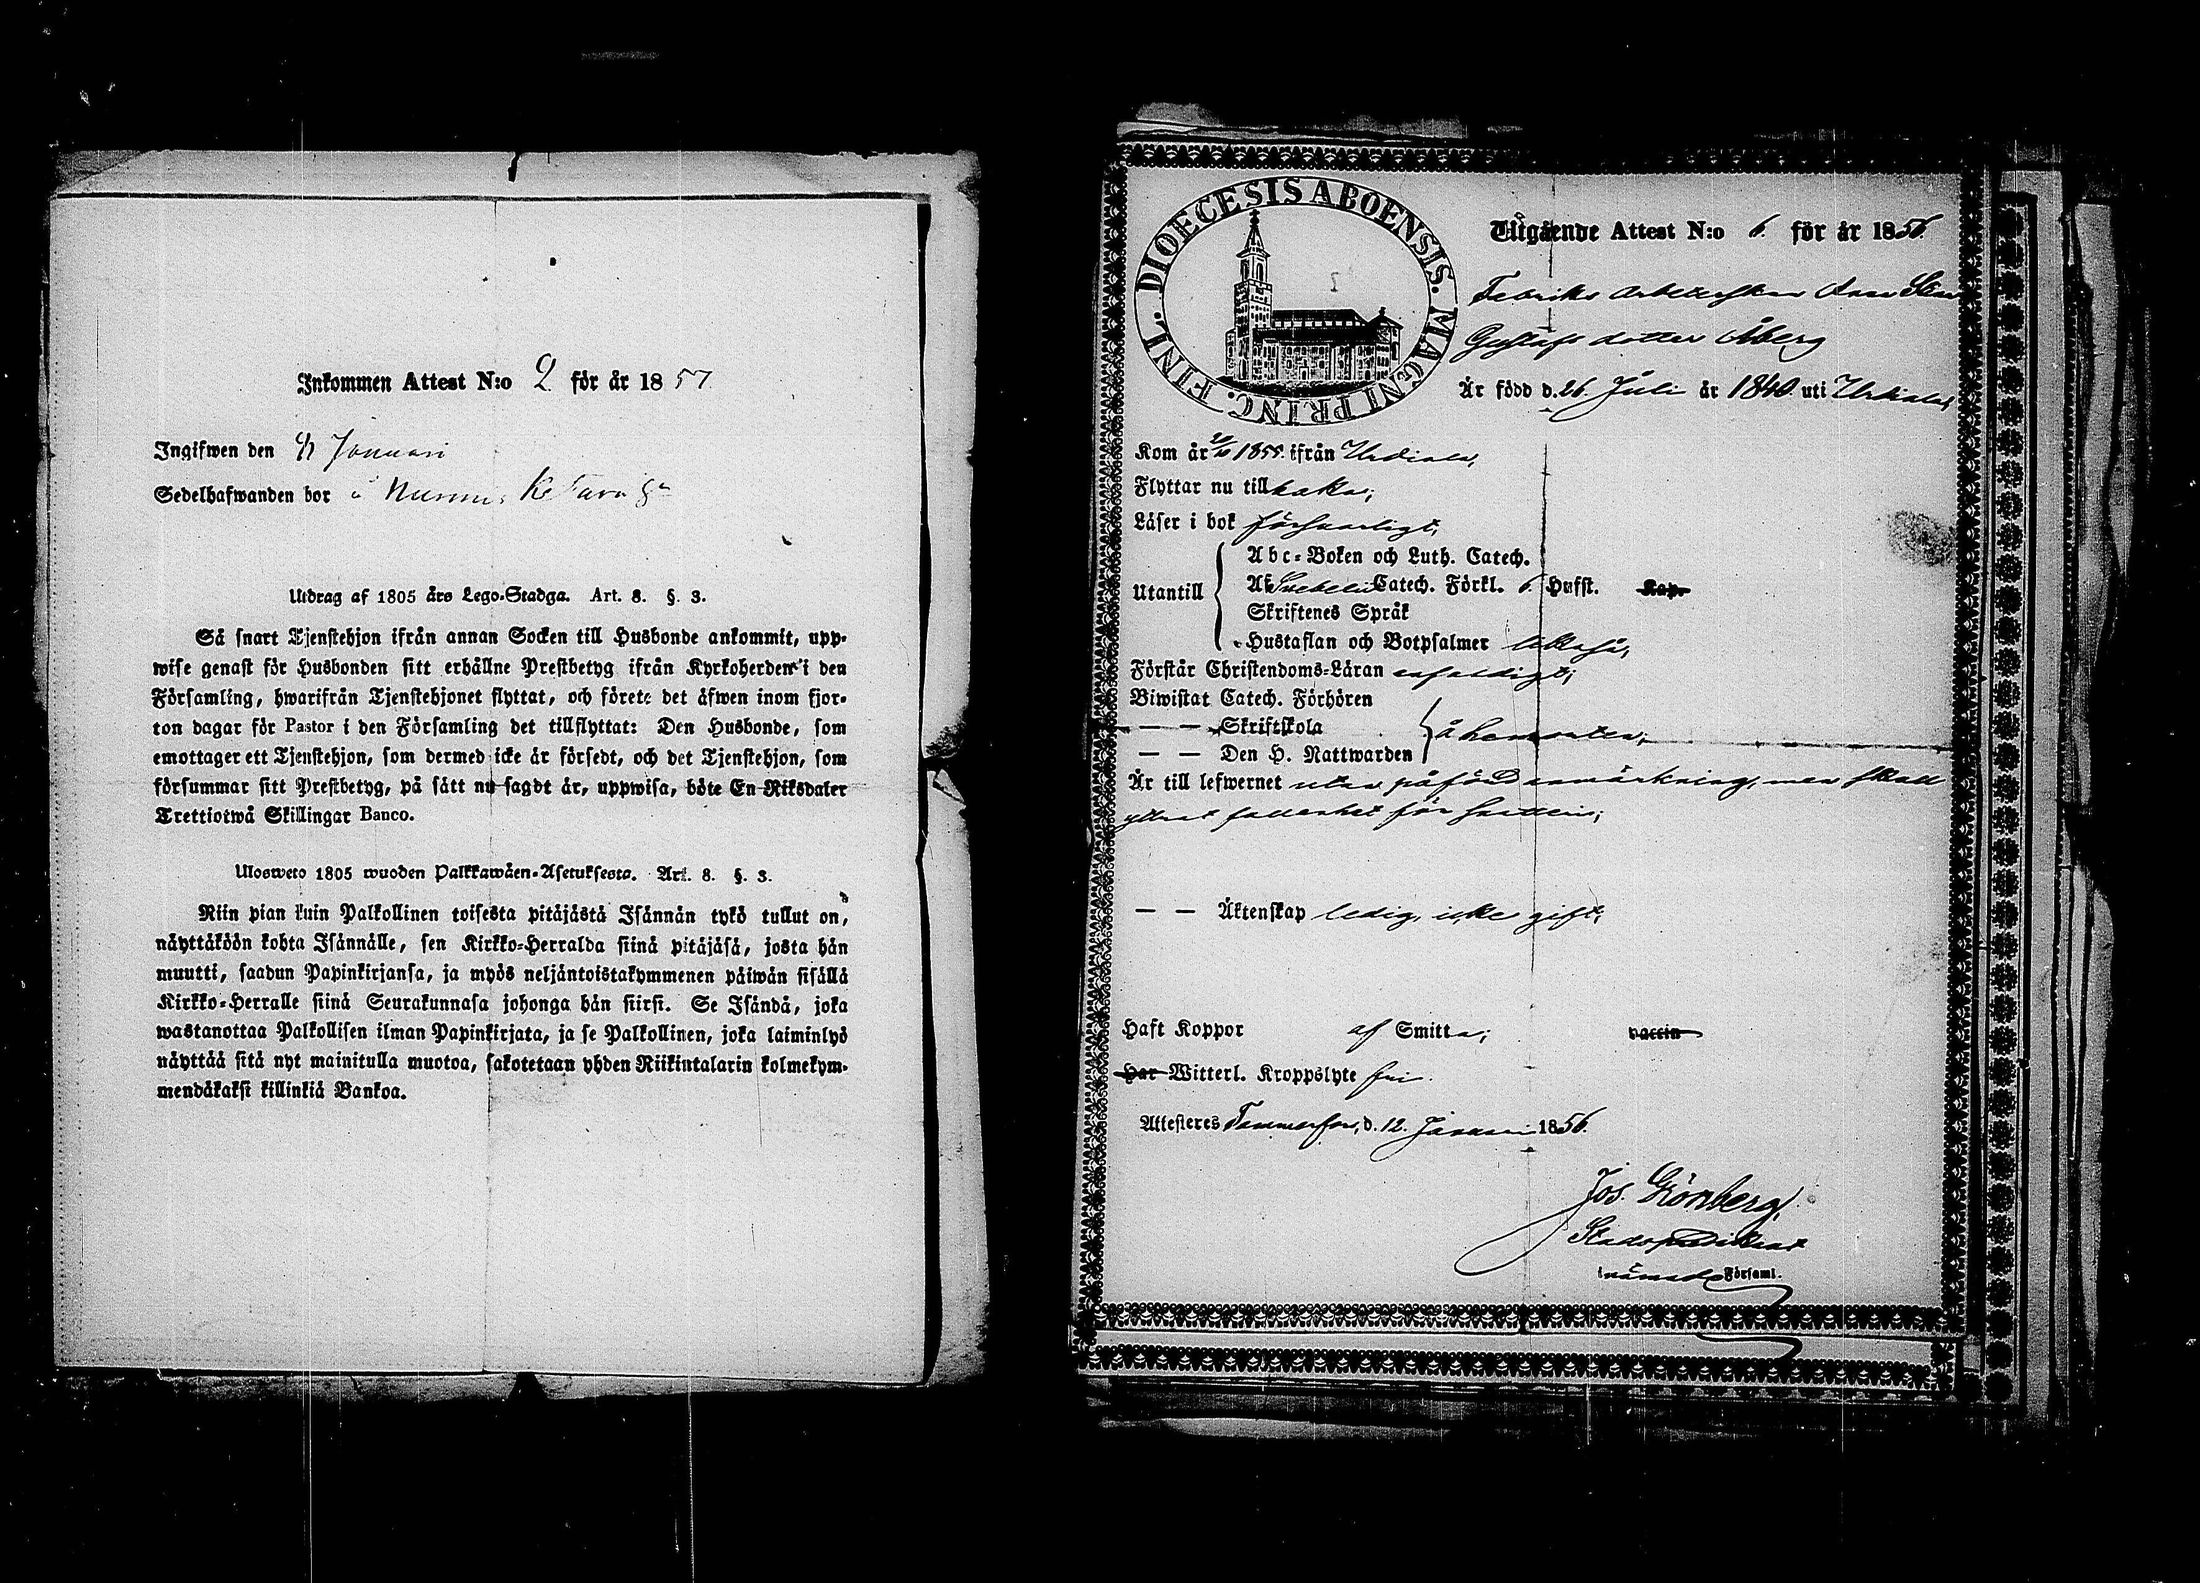 Inkommen Attest N:o 2 för år 1857
Ingifwen den Januari
Sedelhafwanden bor
Utdrag af 1805 års Lego-Stadga. Art. 8. §. 3.
Så snart Tjenstehjon ifrån annan Socken till Husbonde ankommit, upp-
wise genast för Husbonden sitt erhållne Prestbetyg ifrån Kyrkoherden i den
Församling, hwarifrån Tjenstehjonet flyttat, och förete det äfwen inom fjor-
ton dagar för Pastor i den Församling det tillflyttat: Den Husbonde, som
emottager ett Tjenstehjon, som dermed icke är försedt, och det Tjenstehjon, som
försummar sitt Prestbetyg, på sätt nu sagdt är, uppwisa, böte En Riksdaler
Trettiotwå Skillingar Banco.
Ulosweto 1805 wuoden Palkkawäen-Asetuksesta. Art. 8. §. 3.
Niin pian kuin Palkollinen toisesta pitäjästä Isännän tykö tullut on,
näyttäköön kohta Isännälle, sen Kirkko-Herralda siinä pitäjäsä, josta hän
muutti, saadun Papinkirjansa, ja myös neljäntoistakymmenen päiwän sisällä
Kirkko-Herralle siinä Seurakunnasa johonga hän siirsi. Se Isändä, joka
wastanottaa Palkollisen ilman Papinkirjata, ja se Palkollinen, joka laiminlyö
näyttää sitä nyt mainitulla muotoa, sakotetaan yhden Riikintalarin kolmekym-
mendäkaksi killinkiä Bankoa.
DIOECESIS ABOENSIS. MAGNI PRINC. FINL.
Utgående Attest N:o 6. för år 1856.
Fabriks Arbeterskan Anna Stina
Gustafs dotter Åberg
Är född d. 26. Juli år 1840. uti Urdiala,
Kom år 1855. ifrån Urdiala,
Flyttar nu till
Läser i bok försvarligt,
Utantill
Abc-Boken och Luth. Catech.
Af Svebelii Catech. Förkl. 6. Hufst. Kap.
Skriftenes Språk
Hustaflan och Botpsalmer likaså,
Förstår Christendoms-Läran enfaldigt;
Biwistat Catech. Förhören
— — Skriftskola
— — Den H. Nattwarden å hemorten;
Är till lefwernet utan påförd anmärkning, men skall
yttrat fallenhet för snatteri;
— — Äktenskap ledig, icke gift;
Haft Koppor af Smitta; vaccin
Har Witterl. Kroppslyte fri.
Attesteres Tammerfors, d. 12. Januari 1856.
Jos. Grönberg,
Stadspredikant
i nämnde Församl.